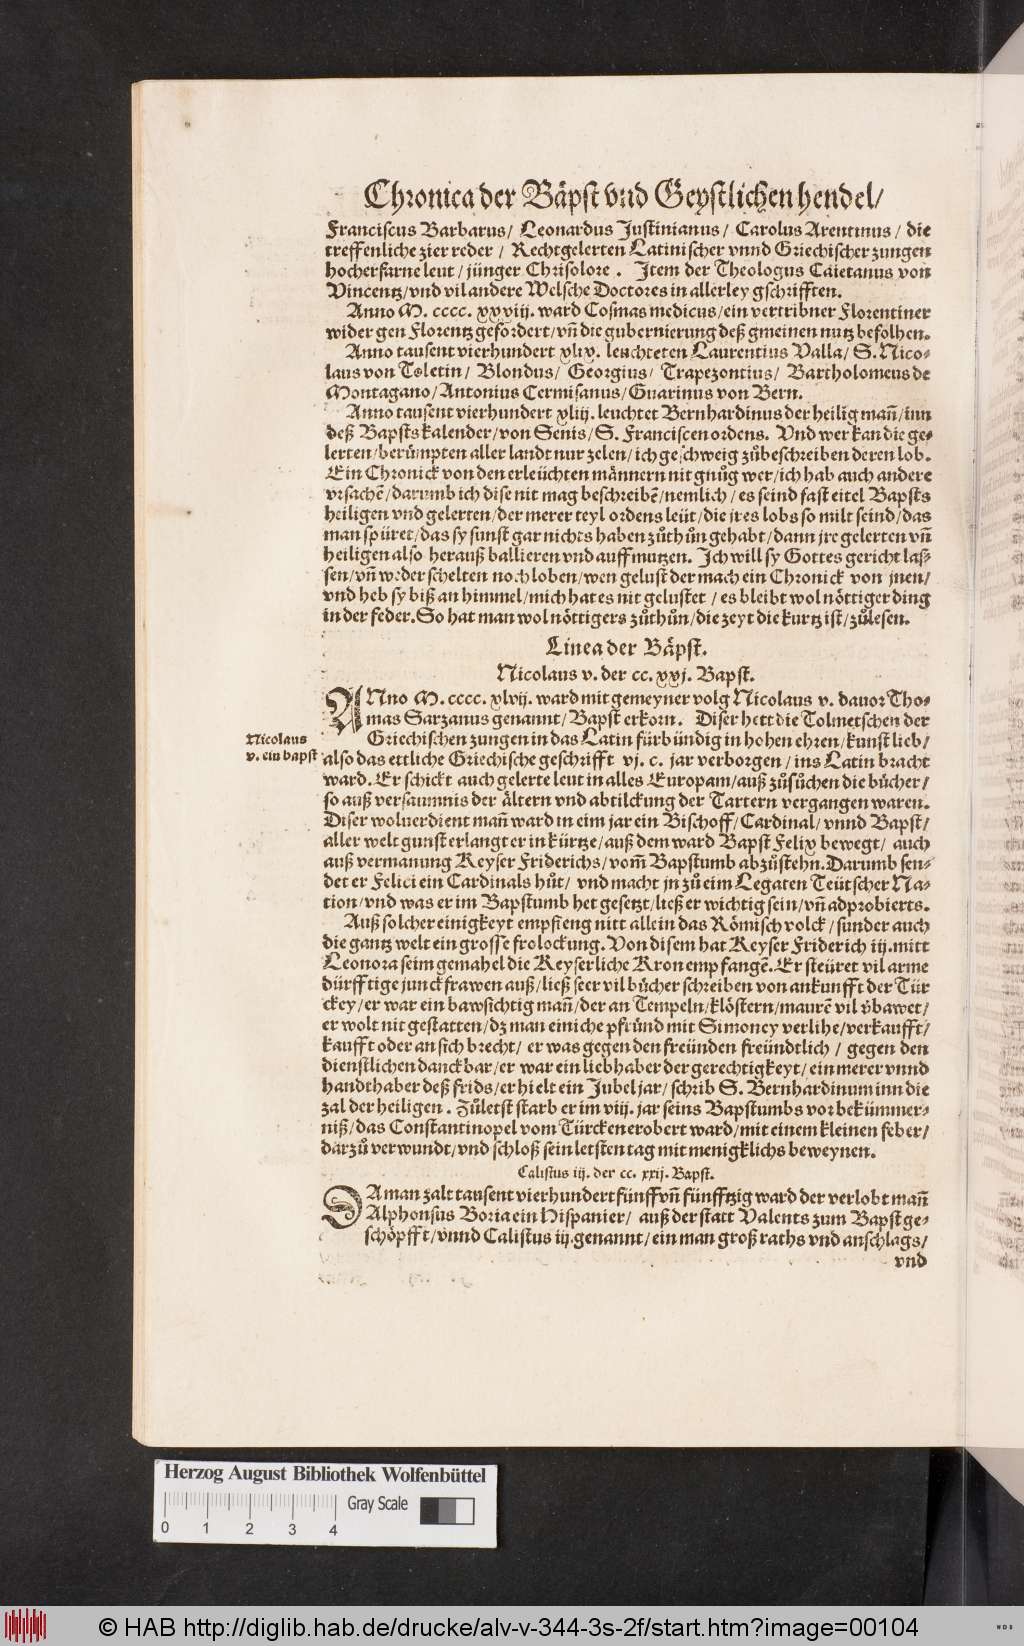 Chronica der Bäpst vnd Geystlichen hendel/
Franciscus Barbarus/ Leonardus Justinianus/ Carolus Arentinus/ die
treffenliche zier reder/ Rechtgelerten Latinischer vnnd Griechischer zungen
hocherfarne leut/ jünger Chrisolore. Item der Theologus Caietanus von
Vincentz/ vnd vil andere Welsche Doctores in allerley gschrifften.
Anno M. cccc. xxviij. ward Cosmas medicus/ ein vertribner Florentiner
wider gen Florentz gefordert/ vn̄ die gubernierung deß gmeinen nutz befolhen.
Anno tausent vierhundert xlix. leuchteten Laurentius Valla/ S. Nico-
laus von Toletin/ Blondus/ Georgius/ Trapezontius/ Bartholomeus de
Montagano/ Antonius Cermisanus/ Guarinus von Bern.
Anno tausent vierhundert xliij. leuchtet Bernhardinus der heilig man̄/ inn
deß Bapsts kalender/ von Senis/ S. Franciscen ordens. Vnd wer kan die ge-
lerten/ berůmpten aller landt nur zelen/ ich geschweig zůbeschreiben deren lob.
Ein Chronick von den erleüchten männern nit gnůg wer/ ich hab auch andere
vrsachē/ darumb ich dise nit mag beschreibē/ nemlich/ es seind fast eitel Bapsts
heiligen vnd gelerten/ der merer teyl ordens leüt/ die jres lobs so milt seind/ das
man spüret/ das sy sunst gar nichts haben zůthůn gehabt/ dann jre gelerten vn̄
heiligen also herauß ballieren vnd auffmutzen. Ich will sy Gottes gericht las-
sen/ vn̄ weder schelten noch loben/ wen gelust der mach ein Chronick von jnen/
vnd heb sy biß an himmel/ mich hat es nit gelustet/ es bleibt wol nöttiger ding
in der feder. So hat man wol nöttigers zůthůn/ die zeyt die kurtz ist/ zůlesen.
Linea der Bäpst.
Nicolaus v. der cc. xxj. Bapst.
ANno M. cccc. xlvij. ward mit gemeyner volg Nicolaus v. dauor Tho-
mas Sarzanus genannt/ Bapst erkorn. Diser hett die Tolmetschen der
Nicolaus
v. ein bapst
Griechischen zungen in das Latin fürbündig in hohen ehren/ kunst lieb/
also das ettliche Griechische geschrifft vj. c. jar verborgen/ ins Latin bracht
ward. Er schickt auch gelerte leut in alles Europam/ auß zůsůchen die bůcher/
so auß versaumnis der ältern vnd abtilckung der Tartern vergangen waren.
Diser woluerdient man̄ ward in eim jar ein Bischoff/ Cardinal/ vnnd Bapst/
aller welt gunst erlangt er in kürtze/ auß dem ward Bapst Felix bewegt/ auch
auß vermanung Keyser Friderichs/ vom̄ Bapstumb abzůstehn. Darumb sen-
det er Felici ein Cardinals hůt/ vnd macht jn zů eim Legaten Teütscher Na-
tion/ vnd was er im Bapstumb het gesetzt/ ließ er wichtig sein/ vn̄ adprobierts.
Auß solcher einigkeyt empfieng nitt allein das Römisch volck/ sunder auch
die gantz welt ein grosse frolockung. Von disem hat Keyser Friderich iij. mitt
Leonora seim gemahel die Keyserliche Kron empfangē. Er steüret vil arme
dürfftige junckfrawen auß/ ließ seer vil bůcher schreiben von ankunfft der Tür
ckey/ er war ein bawsichtig man̄/ der an Tempeln/ klöstern/ maurē vil v̊bawet/
er wolt nit gestatten/ dz man einiche pfründ mit Simoney verlihe/ verkaufft/
kaufft oder an sich brecht/ er was gegen den freünden freündtlich/ gegen den
dienstlichen danckbar/ er war ein liebhaber der gerechtigkeyt/ ein merer vnnd
handthaber deß frids/ er hielt ein Jubeljar/ schrib S. Bernhardinum inn die
zal der heiligen. Zůletst starb er im viij. jar seins Bapstumbs vor bekümmer-
niß/ das Constantinopel vom Türcken erobert ward/ mit einem kleinen feber/
darzů verwundt/ vnd schloß sein letsten tag mit menigklichs beweynen.
Calistus iij. der cc. xxij. Bapst.
DA man zalt tausent vierhundert fünff vn̄ fünfftzig ward der verlobt man̄
Alphonsus Boria ein Hispanier/ auß der statt Valents zum Bapst ge-
schöpfft/ vnnd Calistus iij. genannt/ ein man groß raths vnd anschlags/
vnd
Herzog August Bibliothek Wolfenbüttel
Gray Scale
0 1 2 3 4
© HAB http://diglib.hab.de/drucke/alv-v-344-3s-2f/start.htm?image=00104